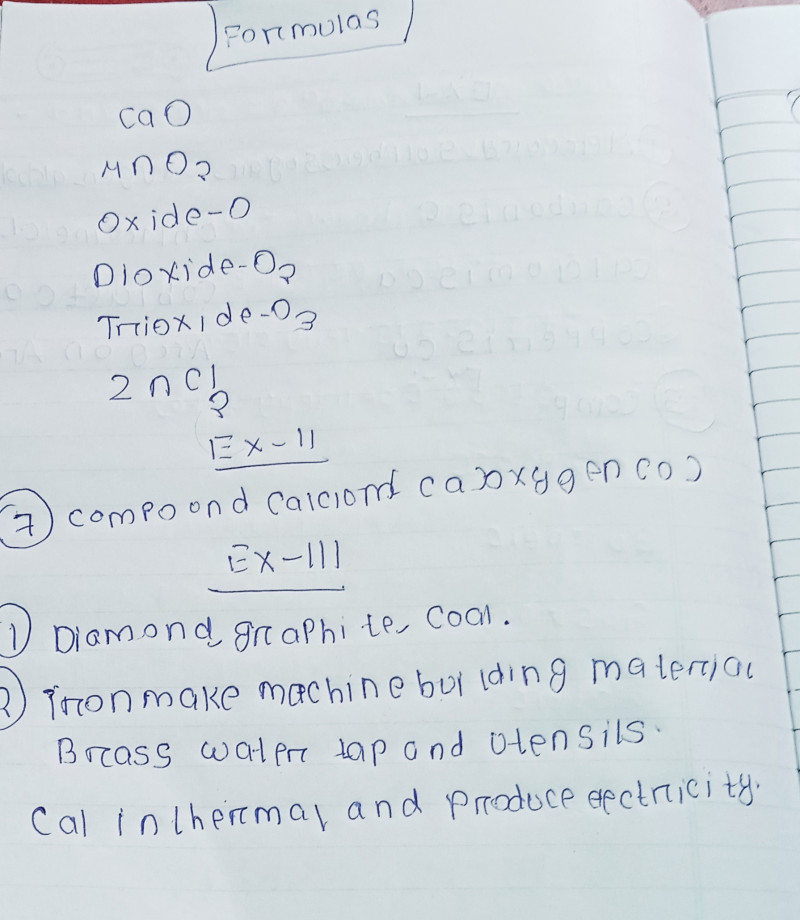 Formulas
CaO
MnO2
Oxide-O
Dioxide-O2
Trioxide-O3
2nCl2
Ex-II
7 compoond calciom ca oxygen (O)
Ex-III
1) Diamond, graphite, coal.
2) Iron make machine building material
Brass water tap and utensils.
Cal in thermal and produce eectricity.